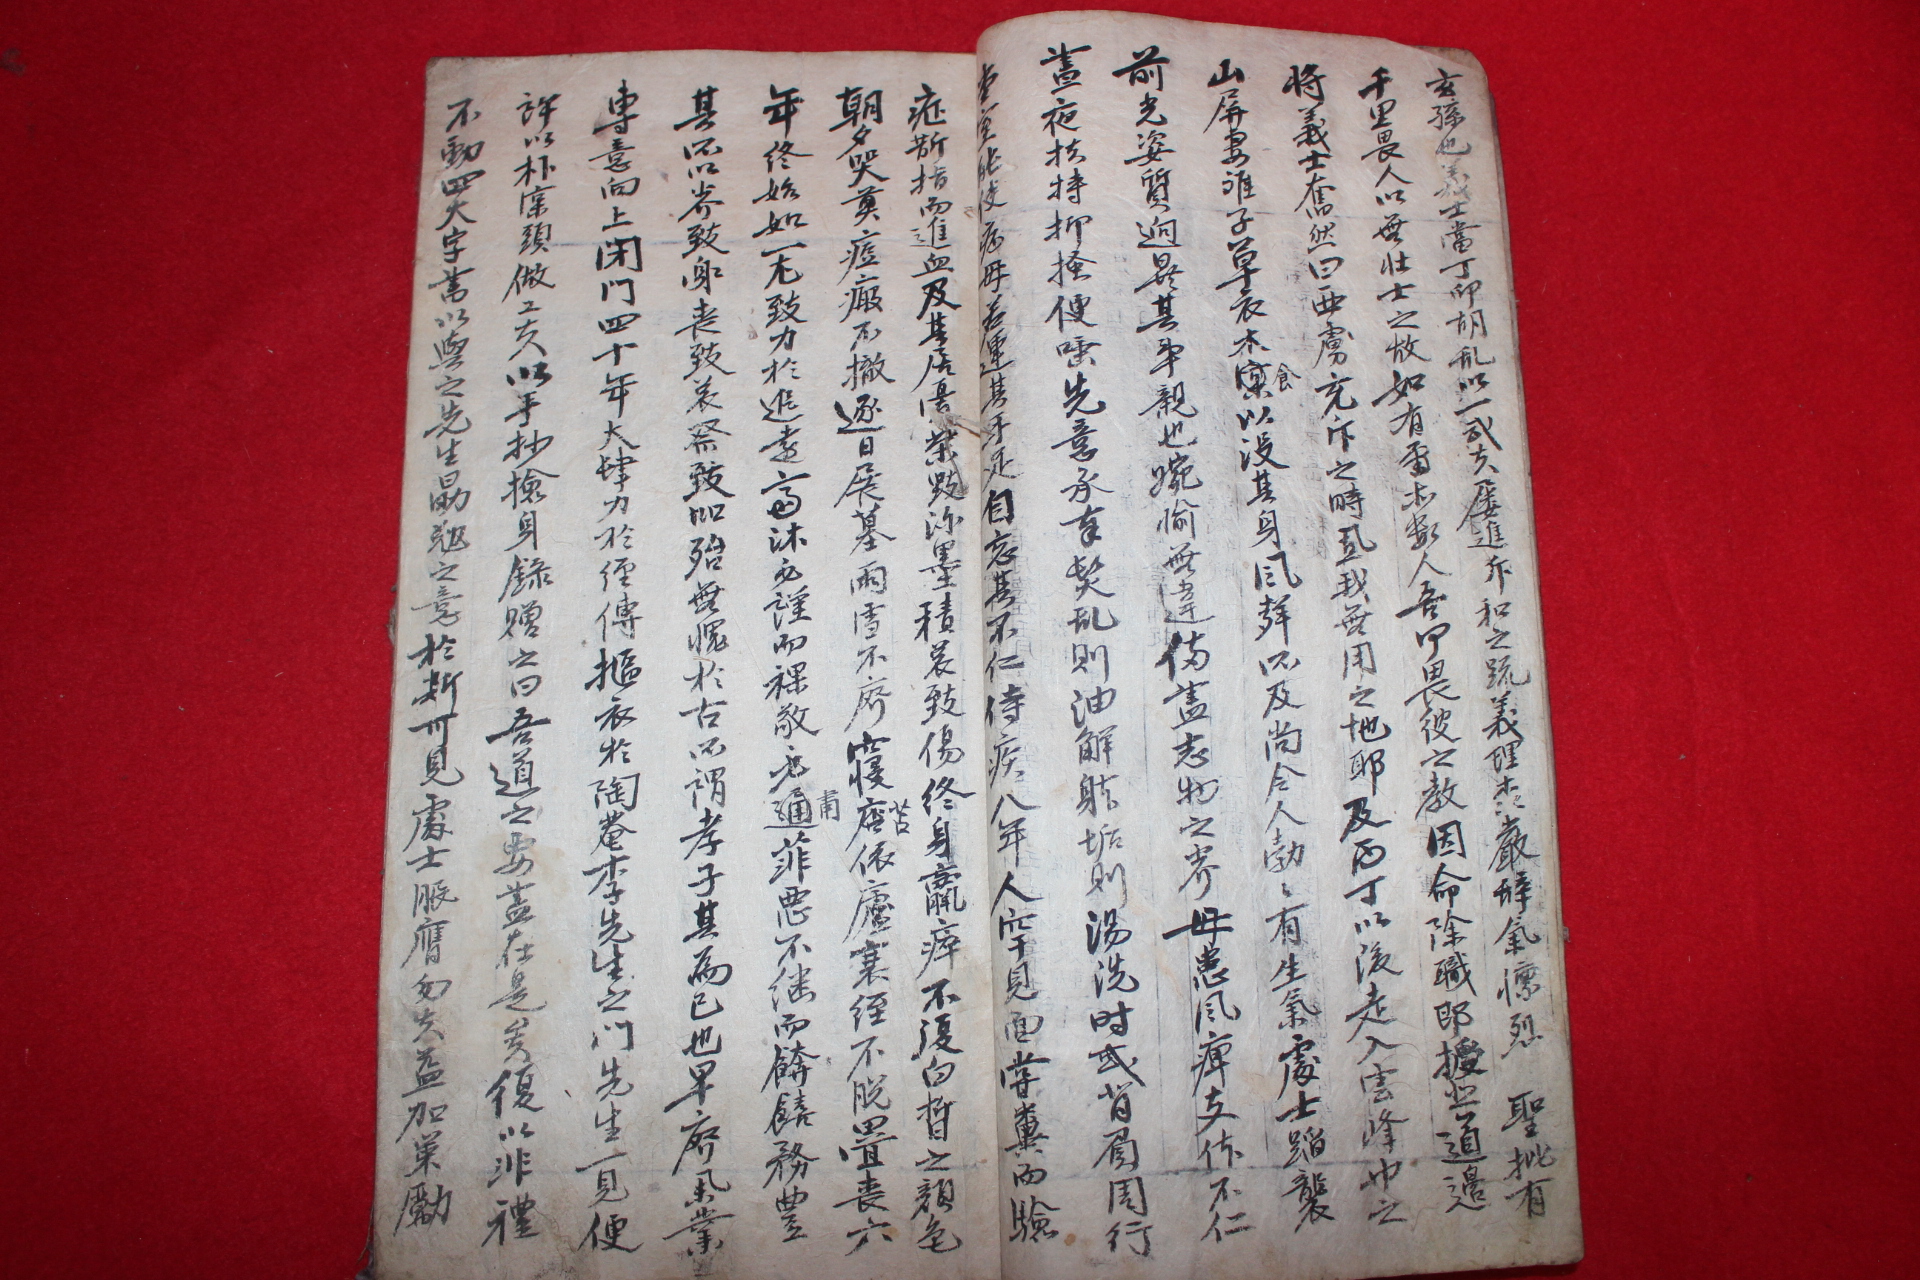 玄孫也義士當丁卯胡乱以一武夫屡進斥和之疏義理杰嚴辞氣懍烈 聖批有
千里畏人以無壮士之故如有雷𣥂数人吾何畏彼之教因命除職郎擢道邉
将義士奮然曰西虜充斥之時豈我無用之地耶及丙丁以後走入雲峰中之
山屏妻稚子草衣木食以没其身風聲所及尚令人勃々有生氣處士蹈襲
前光姿質逈異其事親也婉愉無違備盡志物之养母患風痺支体不仁
盡夜扶持抑搔便唾先意承奉髮乱則油解髮垢則湯洗时或背負周行
堂室能使病母若運其手足自忘其不仁侍疾八年人罕見面嘗糞而驗
症斯指而進血及其居憂柴毁深墨積哀致傷終身羸瘁不復白晳之顔色
朝夕哭奠痘瘢不撤逐日展墓雨雪不廃寢苫依廬衰絰不脱罝喪六
年終始如一尤致力於追遠齋沐必謹而裸敬必肅菲悪不継而餴饎務豊
其所以养致身喪致哀祭致如殆無愧於古所謂孝子其為己也早廃𠆢業
專意向上闭門四十年大肆力於經傳摳衣於陶菴李先生之門先生一見便
許以朴實頭做工夫以手抄撿身録赠之曰吾道之要盖在是矣復以非禮
不動四大字書以與之先生勗勉之意於斯可見處士服膺勿失益加策勵